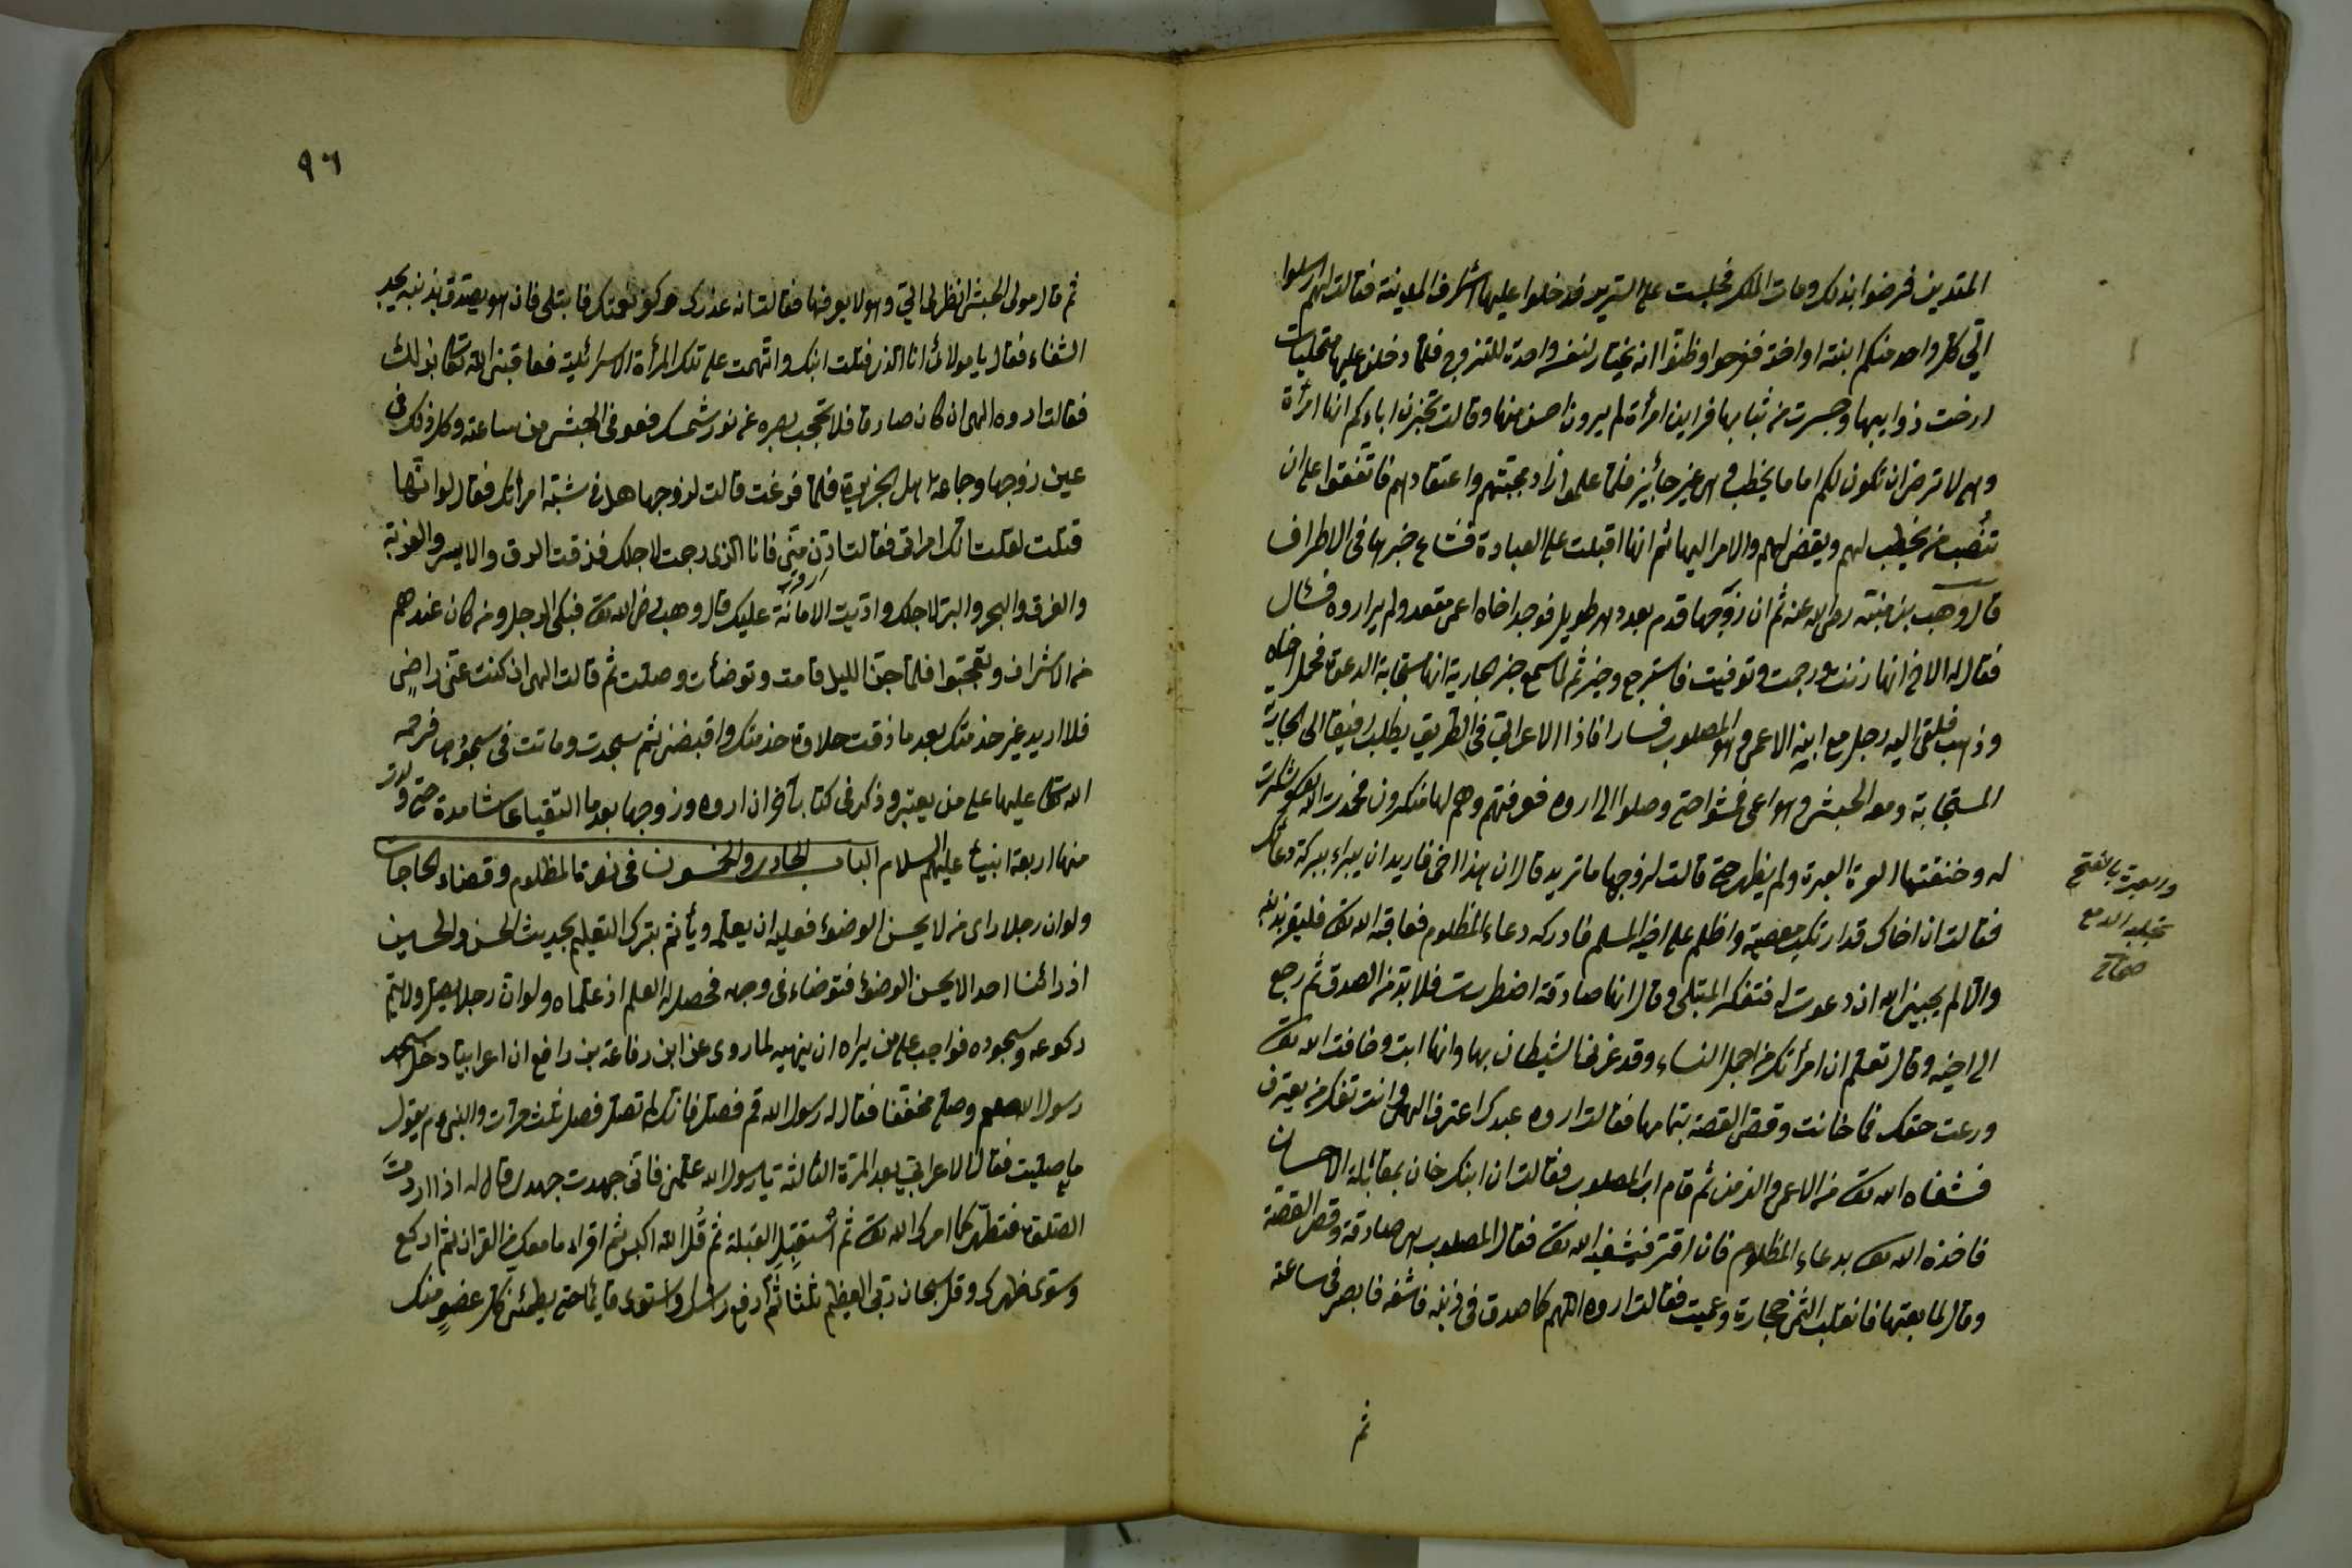 المتدين فرضوا بذلك ومات الملك فجلست على السرير فدخلوا عليها اشراف المدينة فقالت لهم ارسلوا
الي كل واحد منكم ابنته او اخته ففرحوا وظنوا انه يختار لنفسه واحدة للتزوج فلما دخلن عليها متحليات
ارخت ذوايبها وحسرت من ثيابها فراين امرأة لم يرون احسن منها وقالت تخبرن اباءكم انها امرأة
وهي لا ترضى ان تكون لكم اماما يخطب وهي غير جائز فلما علموا زاد محبتهم واعتقادهم فاتفقوا على ان
تنصب من يخطب لهم ويقضي لهم والامر اليها ثم انها اقبلت على العبادة فشاع خبرها في الاطراف
قال وهب بن منبه رضى الله عنه ثم ان زوجها قدم بعد دهر طويل فوجد اخاه اعمى مقعد ولم ير اروه فسئال
فقال له الاخ انها زنت ورجمت وتوفيت فاسترجع وحزن ثم لما سمع خبر جارية انها مستجابة الدعوة فحمل اخاه
وذهب فلقى اليه رجل مع ابنه الاعمى وهو المصلوب فسارا فاذا الاعرابي في الطريق يطلب رفيقا الى الجارية
المستجابة ومعه الحبشى وهو اعمى فمشوا حتى وصلوا الى اروه فعرفتهم وهم لها منكرون فخدرت الله وشكرت
له وخنقتها العبرة ولم يظهر حتى قالت لزوجها ما تريد قال ان هذا اخى فاريد ان يبراء ببركة دعائك
فقالت ان اخاك قد ارتكب معصية واظلم على اخيه المسلم فادركه دعاء المظلوم فعاقبه الله تعالى فليقر بذنبه
والا لم يجيبني الله ان دعوت له فتفكر المبتلى وقال انها صادقة اضطررت فلا بد من الصدق ثم رجع
الى اخيه وقال تعلم ان امرأتك من اجمل النساء وقد غرنى الشيطان بها وانها ابت وخافت الله تعالى
ورعت حقك فما خانت وقص القصة بتمامها فقالت اروه عبدك اعترف الهى وانت تفكر من يعترف
فشفاه الله تعالى من الاعمى والزمن ثم قام اب المصلوب فقالت ان ابنك خان بمقابلة الاحسان
فاخذه الله تعالى بدعاء المظلوم فان اقر فيشفيه الله تعالى فقال المصلوب هى صادقة وقص القصة
وقال لما بعتها فانقلب الثمن حجارة وعميت فقالت اروه اللهم كما صدق في ذنبه فاشفه فابصر في ساعته
ثم
والعبرة بالفتح
تحلب الدمع
صحاح
٩٦
ثم قال مولى الحبشى انظرى الى وهو لا يعرفها فقالت انه عذرك وكفر نعمتك فابتلى فان هو يصدق بذنبه يجد
الشفاء فقال يا مولائ انا الذى قتلت ابنك واتهمت على تلك المرأة الاسرائلية فعاقبنى الله تعالى بذلك
فقالت اروه الهى ان كان صادقا فلا تحجب بصره عن نور شمسك فعوفى الحبشى من ساعته وكل ذلك في
عين زوجها وجاعة اهل الجزيرة فلما فرغت قالت لزوجها هل فى شبه امرأتك فقال لو انها
قتلت لقلت انك امراتى فقالت ادن منى فانا اروى الذى رجمت لاجلك فذقت الرق والايسر والغربة
والغرق والبحر والبر لاجلك واديت الامانة عليك قال وهب رضى الله تعالى فبكى الرجل ومن كان عندهم
من الاشراف وتعجبوا فلما جن الليل قامت وتوضأت وصلت ثم قالت الهى ان كنت عنى راضى
فلا اريد غير خدمتك بعد ما ذقت حلاوة خدمتك واقبضنى ثم سجدت وماتت في سجودها فرحمة
الله تعالى عليها على من يعتبر وذكر في كتاب آخر ان اروه وزوجها بعد ما التقيا عاشا مدة حتى ولدت
منها اربعة انبياء عليهم السلام الباب الحادى والخمسون في نصرة المظلوم وقضاء الحاجات
ولو ان رجلا راى من لا يحسن الوضوء فعليه ان يعلم ويأثم بترك التعليم بحديث الحسن والحسين
اذ رائا احدا لا يحسن الوضوء فتوضاء في وجهه فحصل له العلم اذ علماه ولو ان رجلا يصلى ولا يتم
ركوعه وسجوده فواجب على من يراه ان ينهيه لما روى عن ابن رفاعة بن رافع ان اعرابيا دخل مسجد
رسول الله صلعم وصلى مخففا فقال له رسول الله قم فصل فانك لم تصل فصلى ثلث مرات والنبى عم يقول
ما صليت فقال الاعرابي بعد المرة الثالثة يا رسول الله علمنى فانى جهدت جهدى قال له اذا اردت
الصلوة فتطهر كما امرك الله تعالى ثم استقبل القبلة ثم قل الله اكبر ثم اقراء ما معك من القران ثم اركع
وسوى ظهرك وقل سبحان ربى العظيم ثلثا ثم ارفع رأسك واستوى قايما حتى يطمئن كل عضو منك